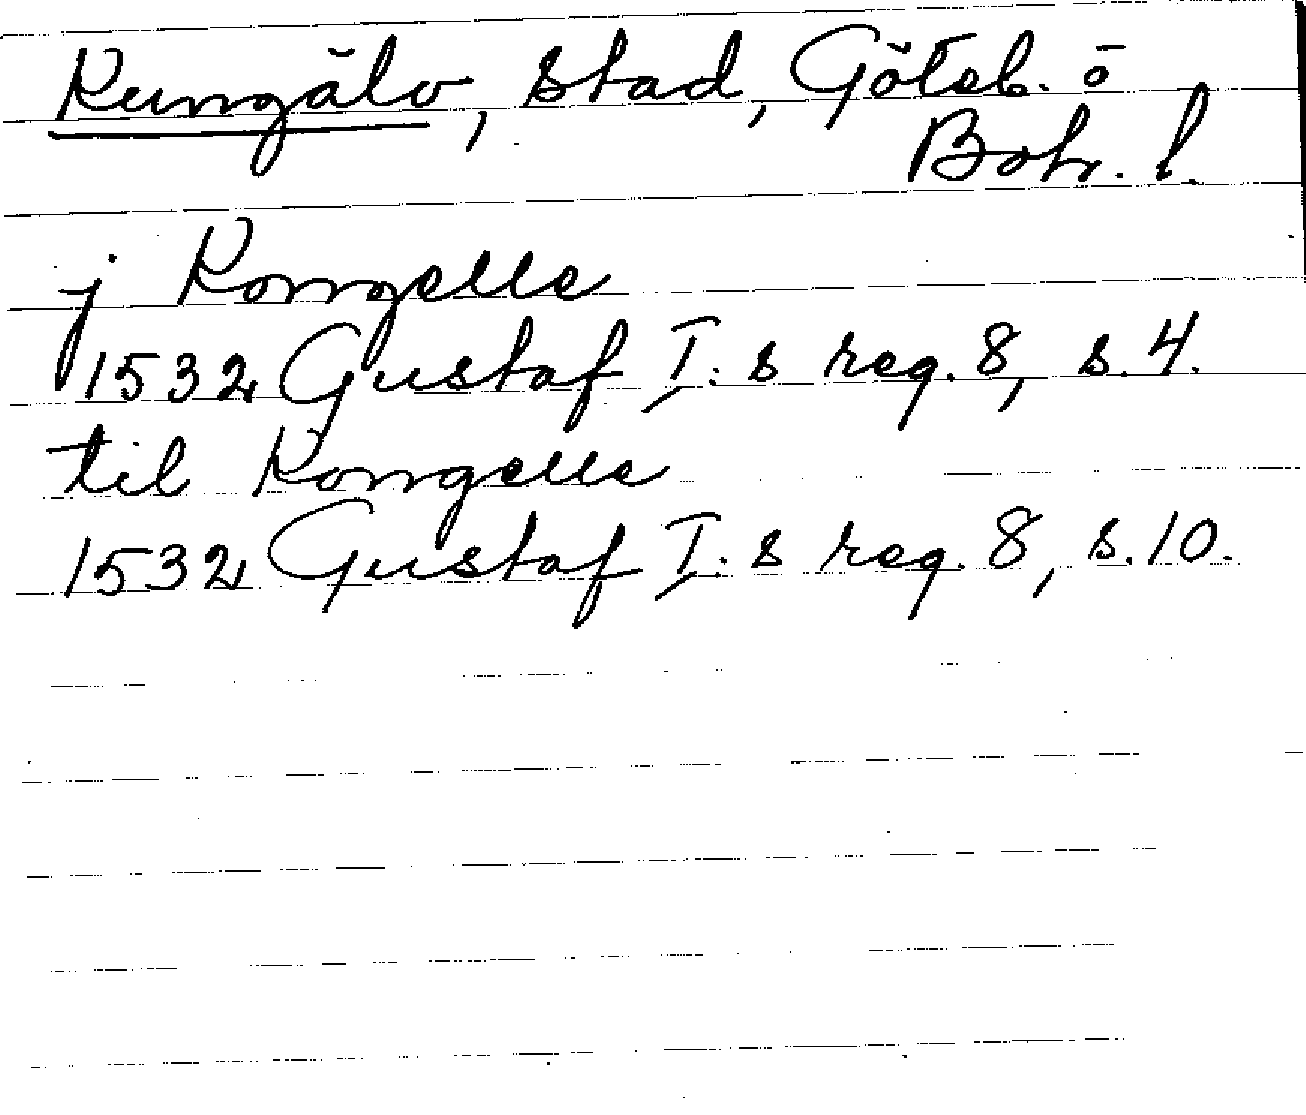 Kungälv, stad, Göteb. o
Boh. l.
j Kongelle
1532 Gustaf I:s reg. 8, s. 4.
til Kongelle
1532 Gustaf I:s reg. 8, s. 10.